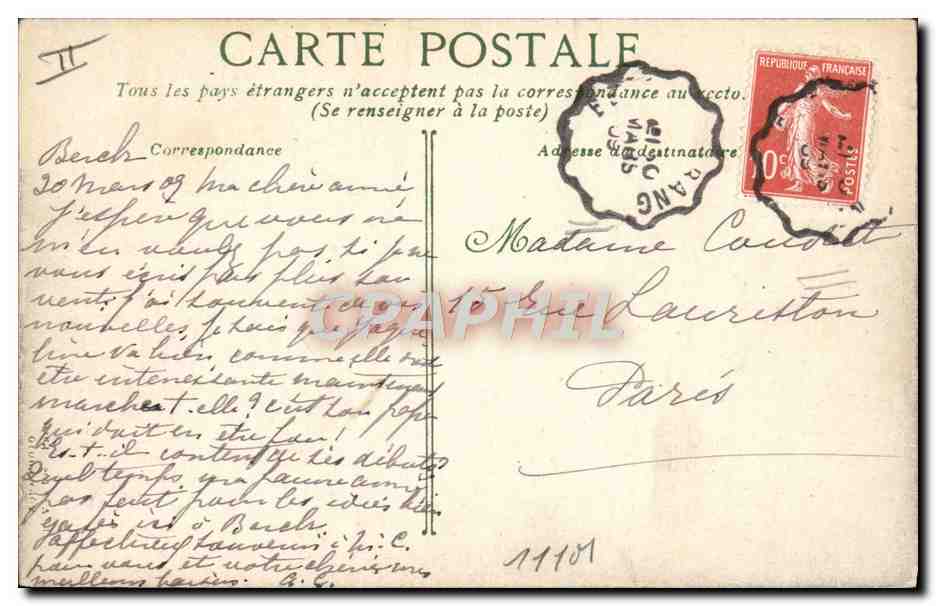 II
CARTE POSTALE
Tous les pays étrangers n'acceptent pas la correspondance au recto.
(Se renseigner à la poste)
Correspondance
Adresse du destinataire
REPUBLIQUE FRANÇAISE
10c
POSTES
RANG
MARS
09
Berck
20 Mars 09 Ma chère amie
j'espère que vous ne
m'en voulez pas si je ne
vous écris pas plus sou
vent, j'ai souvent de vos
nouvelles, je sais que Jacque
line va bien comme elle doit
être interessante maintenant
marche-t-elle? c'est son papa
qui doit en être fou!
Est-il content de ses débuts
Quel temps, ma pauvre amie
pas fait pour les idées bien
gaies ici à Berck
affectueux souvenir à Mr C.
pour vous et votre chérie mes
meilleurs baisers. A. C.
Madame Coudret
15 Rue Lauriston
Paris
11101
CRAPHIL